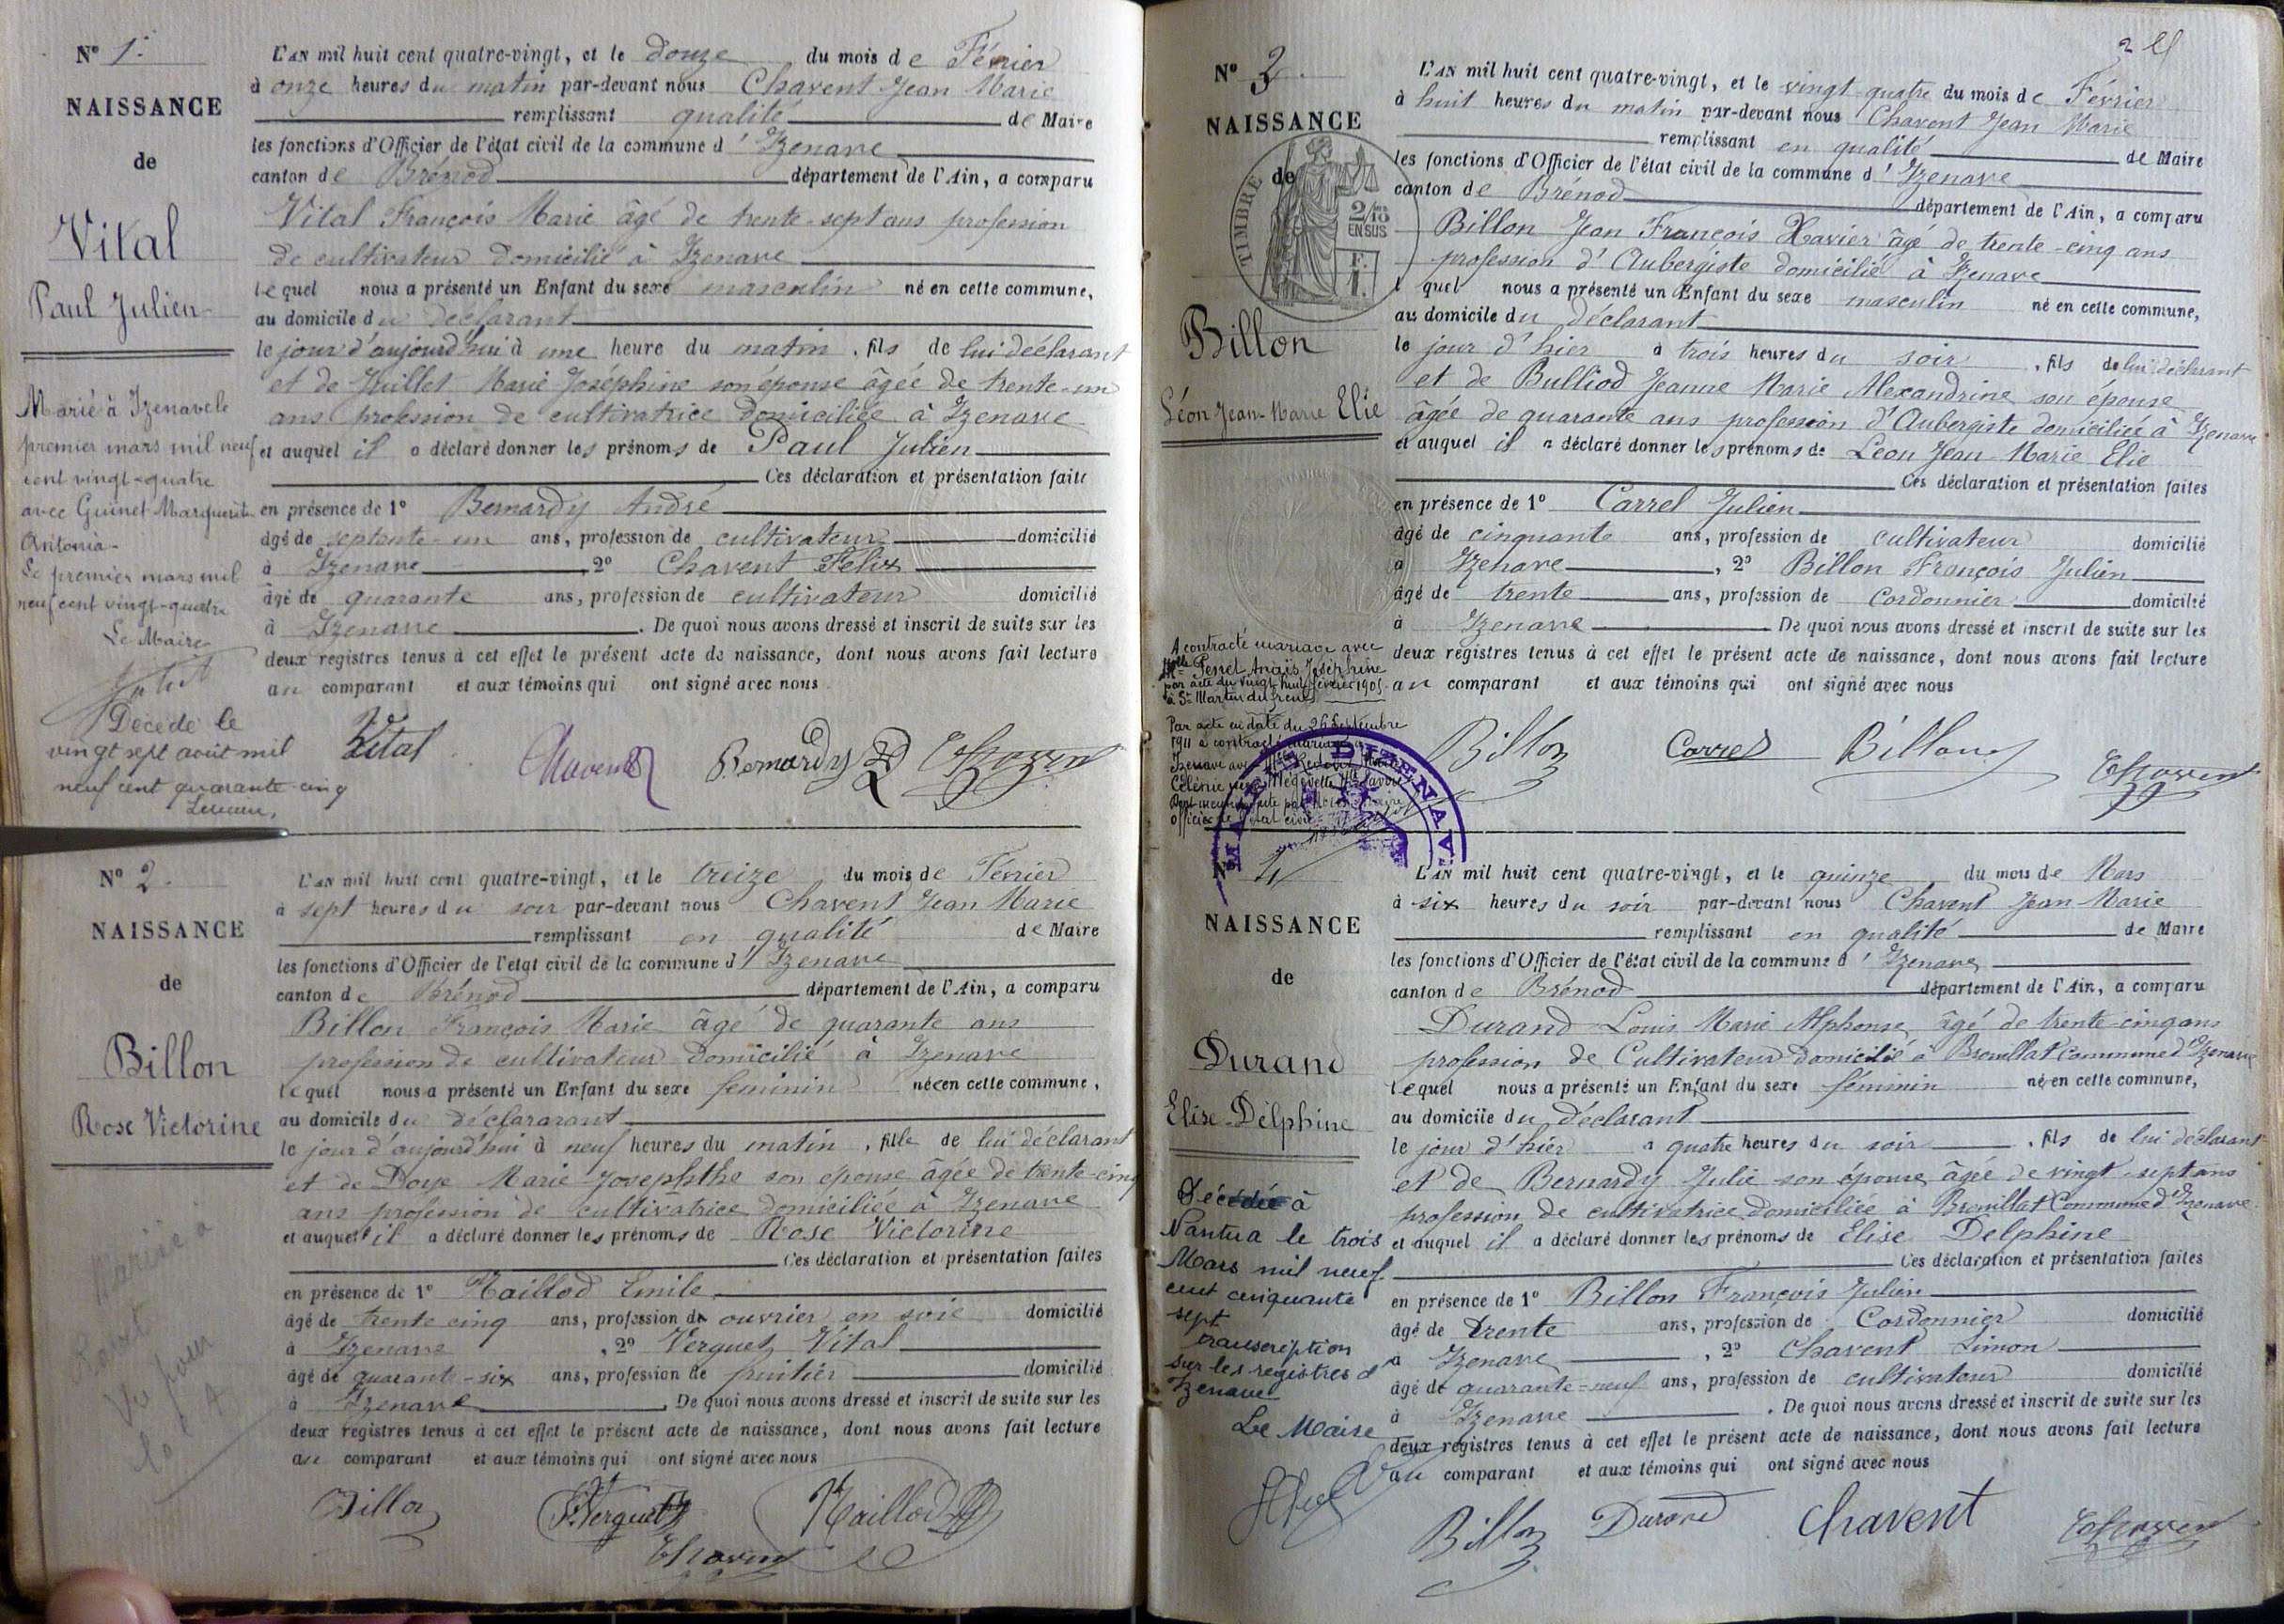 N° 1.
NAISSANCE
de
Vital
Paul Julien
Marié à Izenave le
premier mars mil neuf
cent vingt-quatre
avec Guinet Marguerite
Antonia
Le premier mars mil
neuf cent vingt-quatre
Le Maire
Décédé le
vingt sept août mil
neuf cent quarante cinq
L'AN mil huit cent quatre-vingt, et le douze du mois de Février
à onze heures du matin par-devant nous Chavent Jean Marie
remplissant qualité de Maire
les fonctions d'Officier de l'état civil de la commune d'Izenave
canton de Brénod département de l'Ain, a comparu
Vital François Marie âgé de trente-sept ans profession
de cultivateur domicilié à Izenave
lequel nous a présenté un Enfant du sexe masculin né en cette commune,
au domicile du déclarant
le jour d'aujourd'hui à une heure du matin, fils de lui déclarant
et de Juillet Marie Joséphine son épouse âgée de trente-un
ans profession de cultivatrice domiciliée à Izenave
et auquel il a déclaré donner les prénoms de Paul Julien
Ces déclaration et présentation faites
en présence de 1° Bernardy André
âgé de septente-un ans, profession de cultivateur domicilié
à Izenave, 2° Chavent Félix
âgé de quarante ans, profession de cultivateur domicilié
à Izenave. De quoi nous avons dressé et inscrit de suite sur les
deux registres tenus à cet effet le présent acte de naissance, dont nous avons fait lecture
au comparant et aux témoins qui ont signé avec nous
Vital Chavent Bernardy Chavent
N° 2.
NAISSANCE
de
Billon
Rose Victorine
Mariée à
Vu pour
L'AN mil huit cent quatre-vingt, et le treize du mois de Février
à sept heures du soir par-devant nous Chavent Jean Marie
remplissant en qualité de Maire
les fonctions d'Officier de l'état civil de la commune d'Izenave
canton de Brénod département de l'Ain, a comparu
Billon François Marie âgé de quarante ans
profession de cultivateur domicilié à Izenave
lequel nous a présenté un Enfant du sexe féminin née en cette commune,
au domicile du déclararant
le jour d'aujourd'hui à neuf heures du matin, fille de lui déclarant
et de Doye Marie Josephthe son épouse âgée de trente-cinq
ans profession de cultivatrice domiciliée à Izenave
et auquel il a déclaré donner les prénoms de Rose Victorine
Ces déclaration et présentation faites
en présence de 1° Maillod Emile
âgé de trente cinq ans, profession de ouvrier en soie domicilié
à Izenave, 2° Verguet Vital
âgé de quarante-six ans, profession de fruitier domicilié
à Izenave. De quoi nous avons dressé et inscrit de suite sur les
deux registres tenus à cet effet le présent acte de naissance, dont nous avons fait lecture
au comparant et aux témoins qui ont signé avec nous
Billon Verguet Maillod
Chavent
2
N° 3.
NAISSANCE
de
TIMBRE
2/10 EN SUS
Billon
Léon Jean-Marie Elie
A contracté mariage avec
Melle Perret Anaïs Joséphine
par acte du vingt huit février 1905
à St Martin du Frêne
Par acte en date du 26 Septembre
1911 a contracté mariage à
Izenave avec
MAIRIE D'IZENAVE
L'AN mil huit cent quatre-vingt, et le vingt-quatre du mois de Février
à huit heures du matin par-devant nous Chavent Jean Marie
remplissant en qualité de Maire
les fonctions d'Officier de l'état civil de la commune d'Izenave
canton de Brénod département de l'Ain, a comparu
Billon Jean François Xavier âgé de trente-cinq ans
profession d'Aubergiste domicilié à Izenave
lequel nous a présenté un Enfant du sexe masculin né en cette commune,
au domicile du déclarant
le jour d'hier à trois heures du soir, fils de lui déclarant
et de Bulliod Jeanne Marie Alexandrine son épouse
âgée de quarante ans profession d'Aubergiste domiciliée à Izenave
et auquel il a déclaré donner les prénoms de Léon Jean Marie Elie
Ces déclaration et présentation faites
en présence de 1° Carrel Julien
âgé de cinquante ans, profession de cultivateur domicilié
à Izenave, 2° Billon François Julien
âgé de trente ans, profession de Cordonnier domicilié
à Izenave. De quoi nous avons dressé et inscrit de suite sur les
deux registres tenus à cet effet le présent acte de naissance, dont nous avons fait lecture
au comparant et aux témoins qui ont signé avec nous
Billon Carrel Billon
Chavent
N° 4
NAISSANCE
de
Durand
Elise-Délphine
Décédée à
Nantua le trois
Mars mil neuf
cent cinquante
sept
transcription
sur les registres d'
Izenave
Le Maire
L'AN mil huit cent quatre-vingt, et le quinze du mois de Mars
à six heures du soir par-devant nous Chavent Jean Marie
remplissant en qualité de Maire
les fonctions d'Officier de l'état civil de la commune d'Izenave
canton de Brénod département de l'Ain, a comparu
Durand Louis Marie Alphonse âgé de trente-cinq ans
profession de Cultivateur domicilié à Brouillat commune d'Izenave
lequel nous a présenté un Enfant du sexe féminin né en cette commune,
au domicile du déclarant
le jour d'hier à quatre heures du soir, fils de lui déclarant
et de Bernardy Julie son épouse âgée de vingt-sept ans
profession de cultivatrice domiciliée à Brouillat Commune d'Izenave.
et auquel il a déclaré donner les prénoms de Elise Delphine
Ces déclaration et présentation faites
en présence de 1° Billon François Julien
âgé de trente ans, profession de Cordonnier domicilié
à Izenave, 2° Chavent Simon
âgé de quarante-neuf ans, profession de cultivateur domicilié
à Izenave. De quoi nous avons dressé et inscrit de suite sur les
deux registres tenus à cet effet le présent acte de naissance, dont nous avons fait lecture
au comparant et aux témoins qui ont signé avec nous
Billon Durand Chavent Chavent